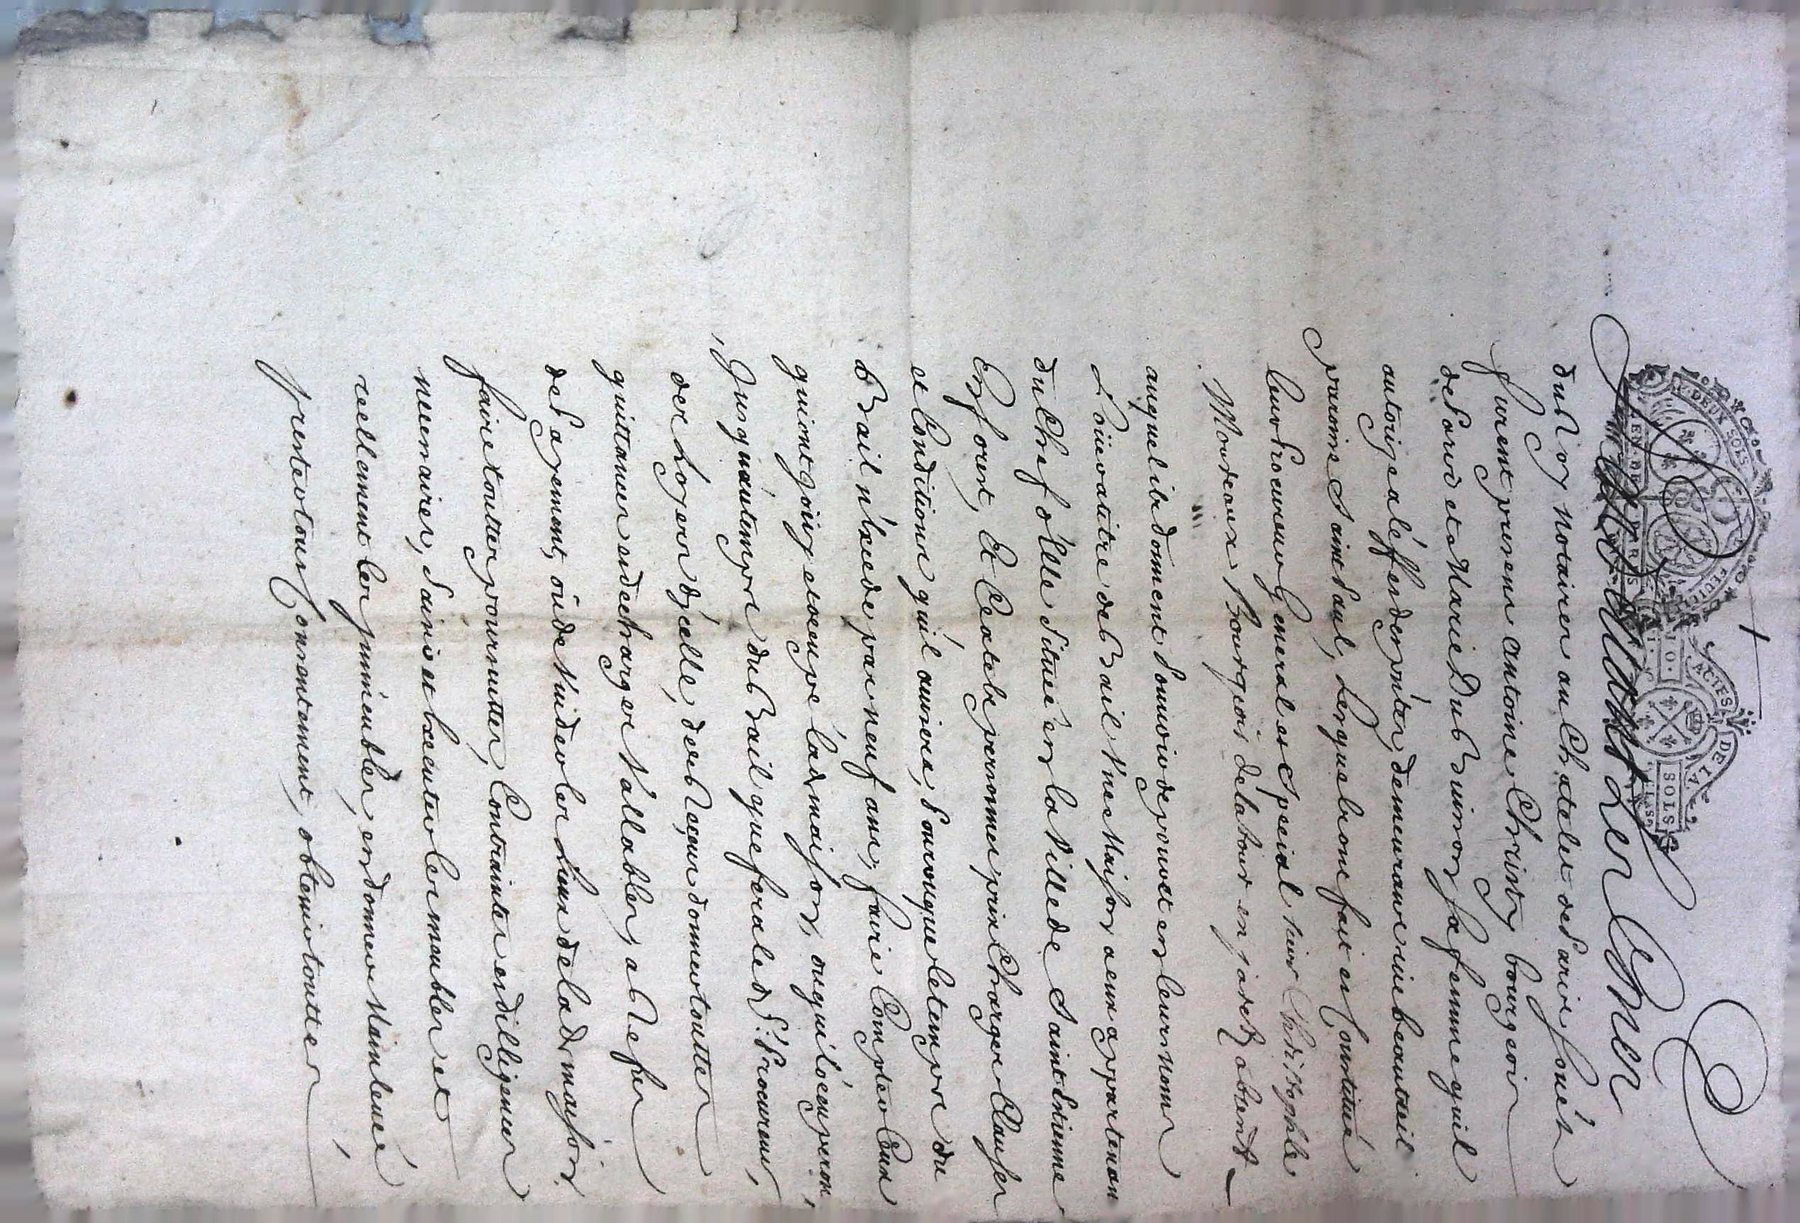 Pardevant Les Cons.ers
du Roy Notaires au Chatelet de Paris soussignés
furent presens Antoine Christy bourgeois
de Paris et Marie Du Buisson sa femme quil
autorise a l'effet des p'ntes, demeurans rue beautreil
paroisse Saint Paul, Lesquels ont fait et Constitué
leur Procureur General et Special sieur Christophle
Morteaux Bourgeois de la Cour en jadet absent
auquel ils donnent Pouvoir de pour eux en leurs noms
Loüer a titre de Bail une Maison a eux appartenan
du Chef d'elle Située en la Ville de Saint Etienne
En forest, Et Ce a tels personnes prix Charges Clauses
et Conditions qu'il avisera, Pourvu que le temps du
Bail n'excede pas neuf ans, faire Compter Ceux
qui ont joüy et occupé lad. maison, ou qui l'occuperont,
Jusqu'au temps du Bail que fera led. S.r Procureur,
des Loyers d'jcelle, des Reçeus donner touttes
quittances et decharges Vallables, a Refus
de Payement, ou de Vuider les Lieux de lad. maison
faire touttes poursuittes, Contraintes et dilligences
necessaires, Saisir et Executer les meubles et
reellement les jmmeubles, en donner Mainlevée
prester tout Consentement, obtenir touttes